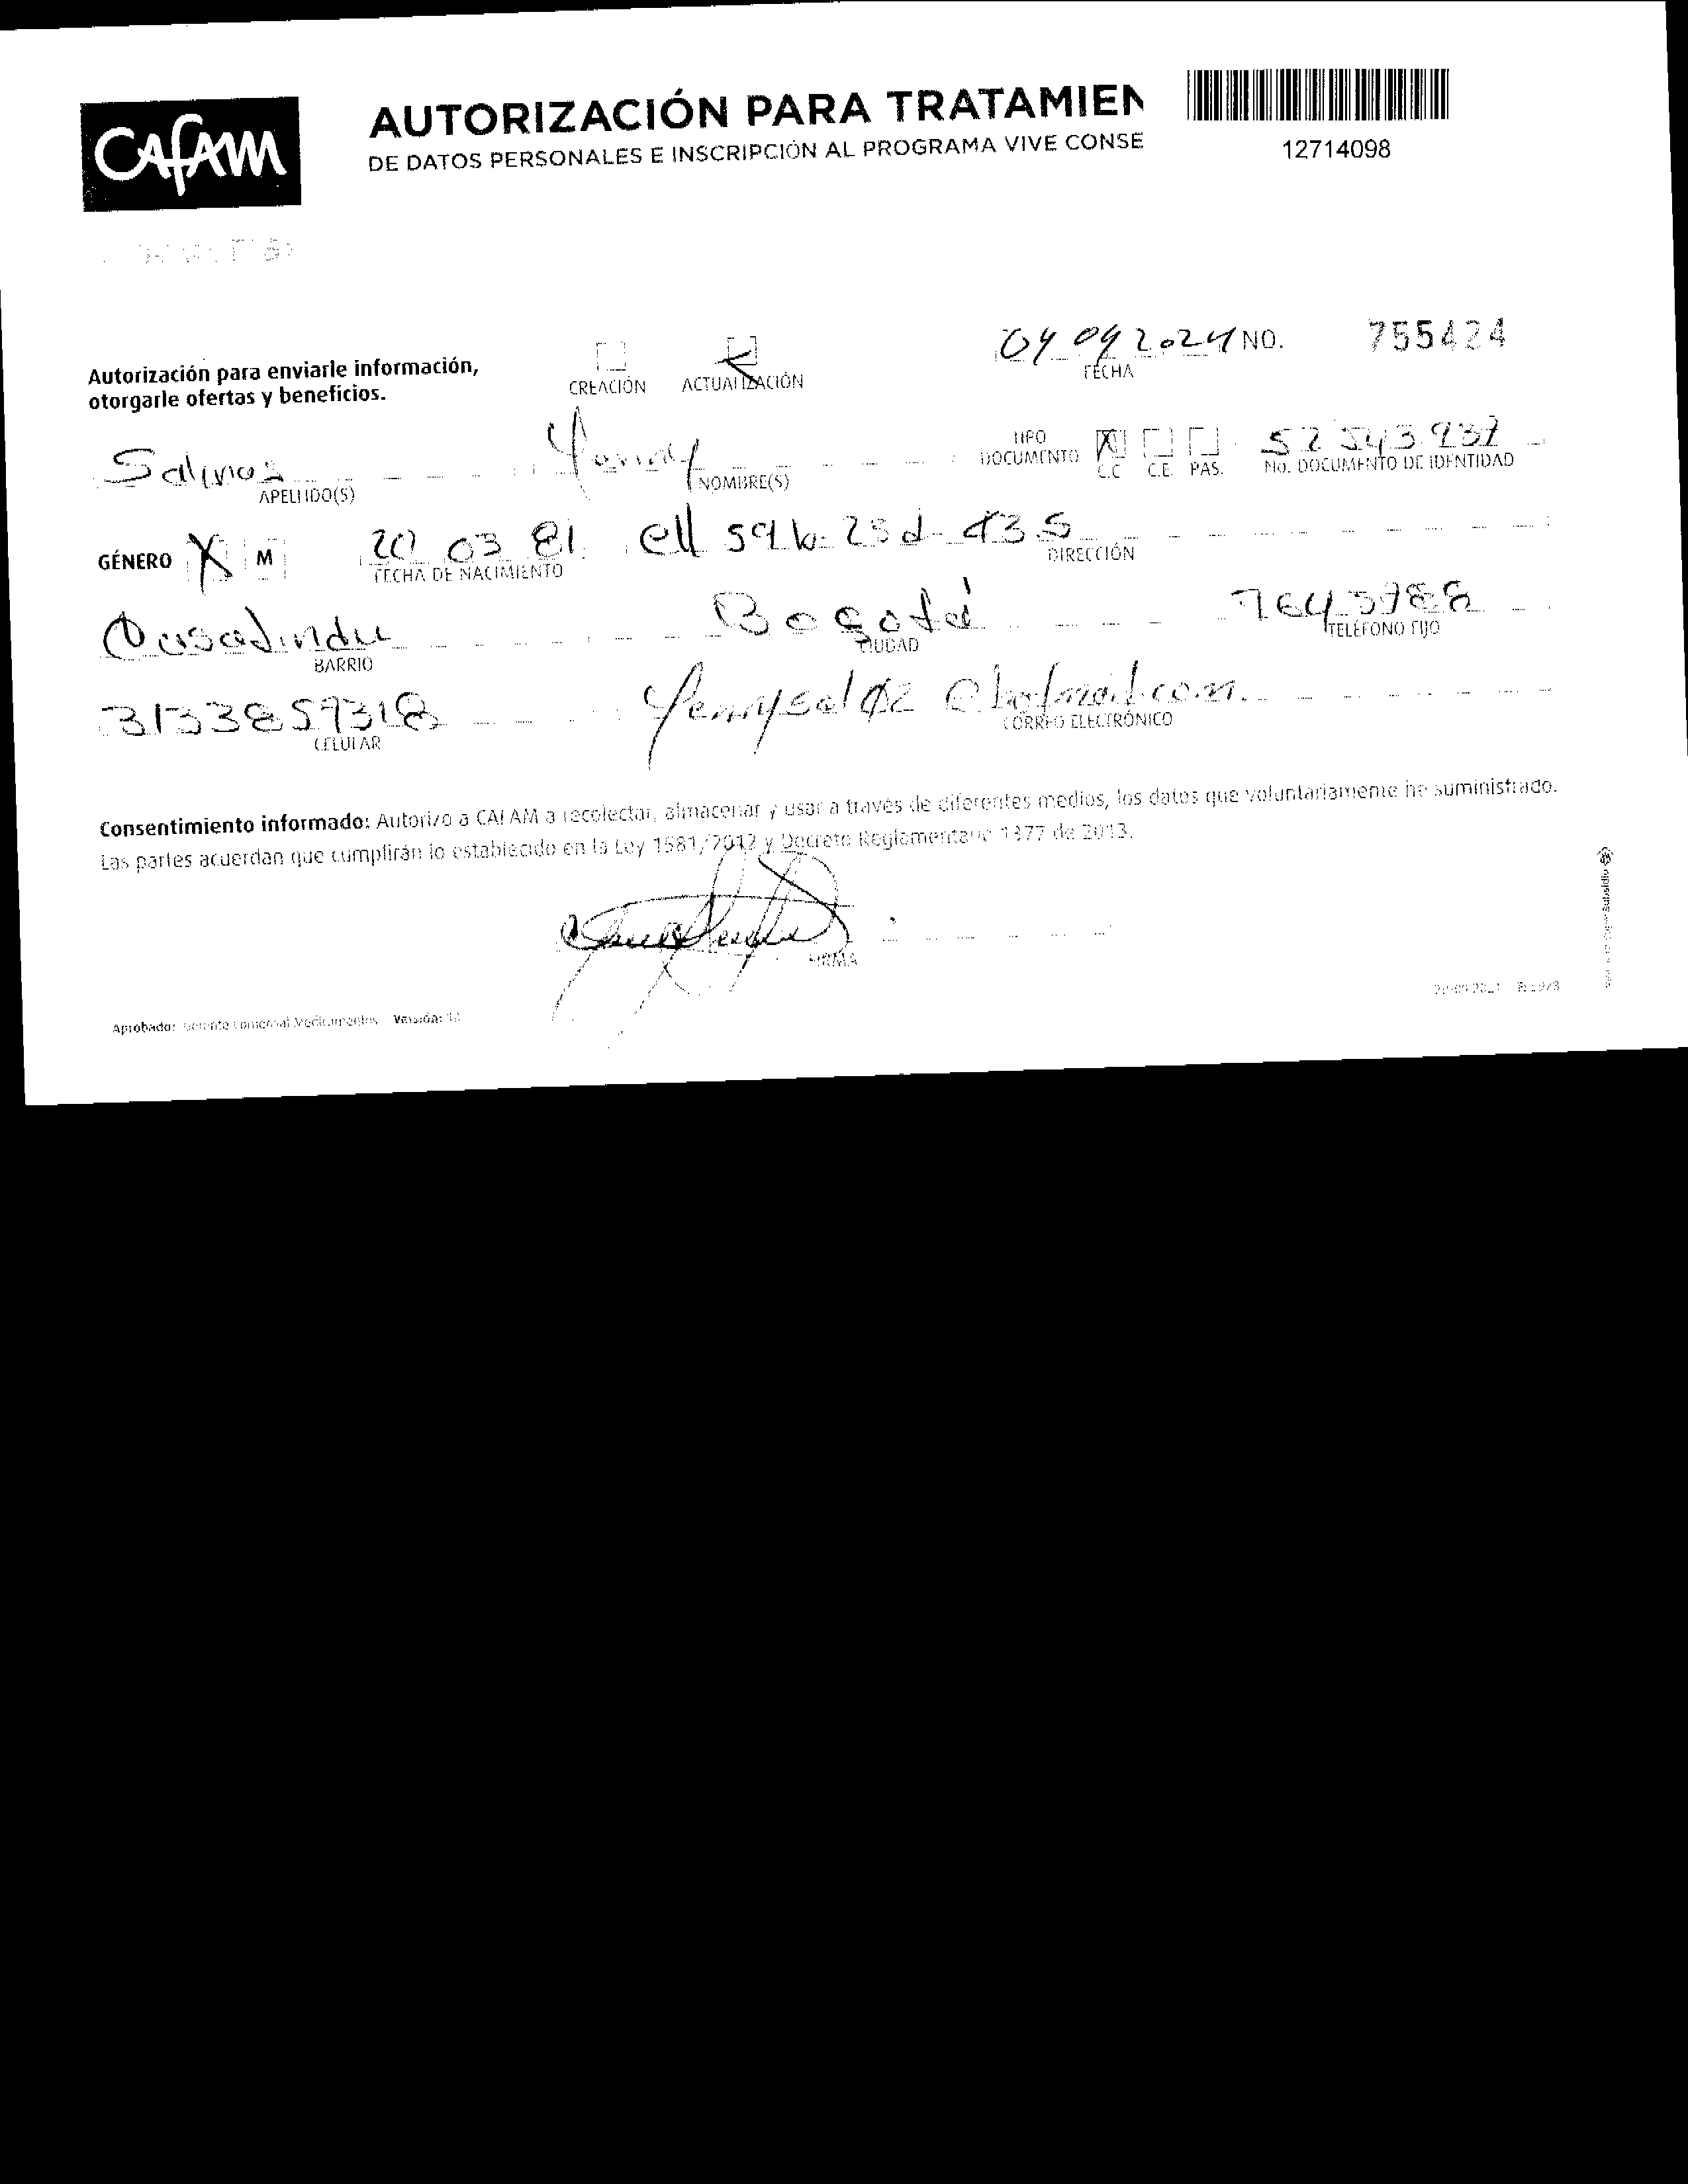 CAFAM
AUTORIZACIÓN PARA TRATAMIEN
DE DATOS PERSONALES E INSCRIPCIÓN AL PROGRAMA VIVE CONSE
12714098
Autorización para enviarle información,
otorgarle ofertas y beneficios.
CREACIÓN ACTUALIZACIÓN
04 09 2024 NO. 755424
FECHA
Salinas Yenny TIPO DOCUMENTO X 52 543 937
APELLIDO(S) NOMBRE(S) C.C C.E. PAS. No. DOCUMENTO DE IDENTIDAD
GÉNERO X M 20 03 81 cll 59 b 23 d 43 S
FECHA DE NACIMIENTO DIRECCIÓN
Casalinda Bogotá 7645788
BARRIO CIUDAD TELÉFONO FIJO
3133859318 Yennysal02@hotmail.com
CELULAR CORREO ELECTRÓNICO
Consentimiento informado: Autorizo a CAFAM a recolectar, almacenar y usar a través de diferentes medios, los datos que voluntariamente he suministrado.
Las partes acuerdan que cumplirán lo establecido en la Ley 1581/2012 y Decreto Reglamentario 1377 de 2013.
FIRMA
Aprobado: Gerente Comercial Medicamentos Versión:
Subsidio